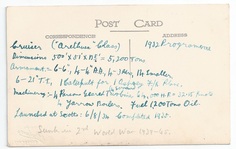 POST CARD
CORRESPONDENCE ADDRESS
Cruiser ("Arethusa" Class) 1932 Programme
Dimensions 500' x 51' x 5,200 Tons
Armament:- 6-6", 4-4" A.A, 4-3 Pdrs, 14 Smaller
6-21" T.T, 1 Catapult for 1
Machinery:- 4 Parsons Geared Turbines 64,000 H.P = 32.5 Knots
4 Yarrow Boilers. Fuel 1200 Tons Oil.
Launched at 6/3/34 Completed 1935.
Sunk in 2nd World War 1939-45